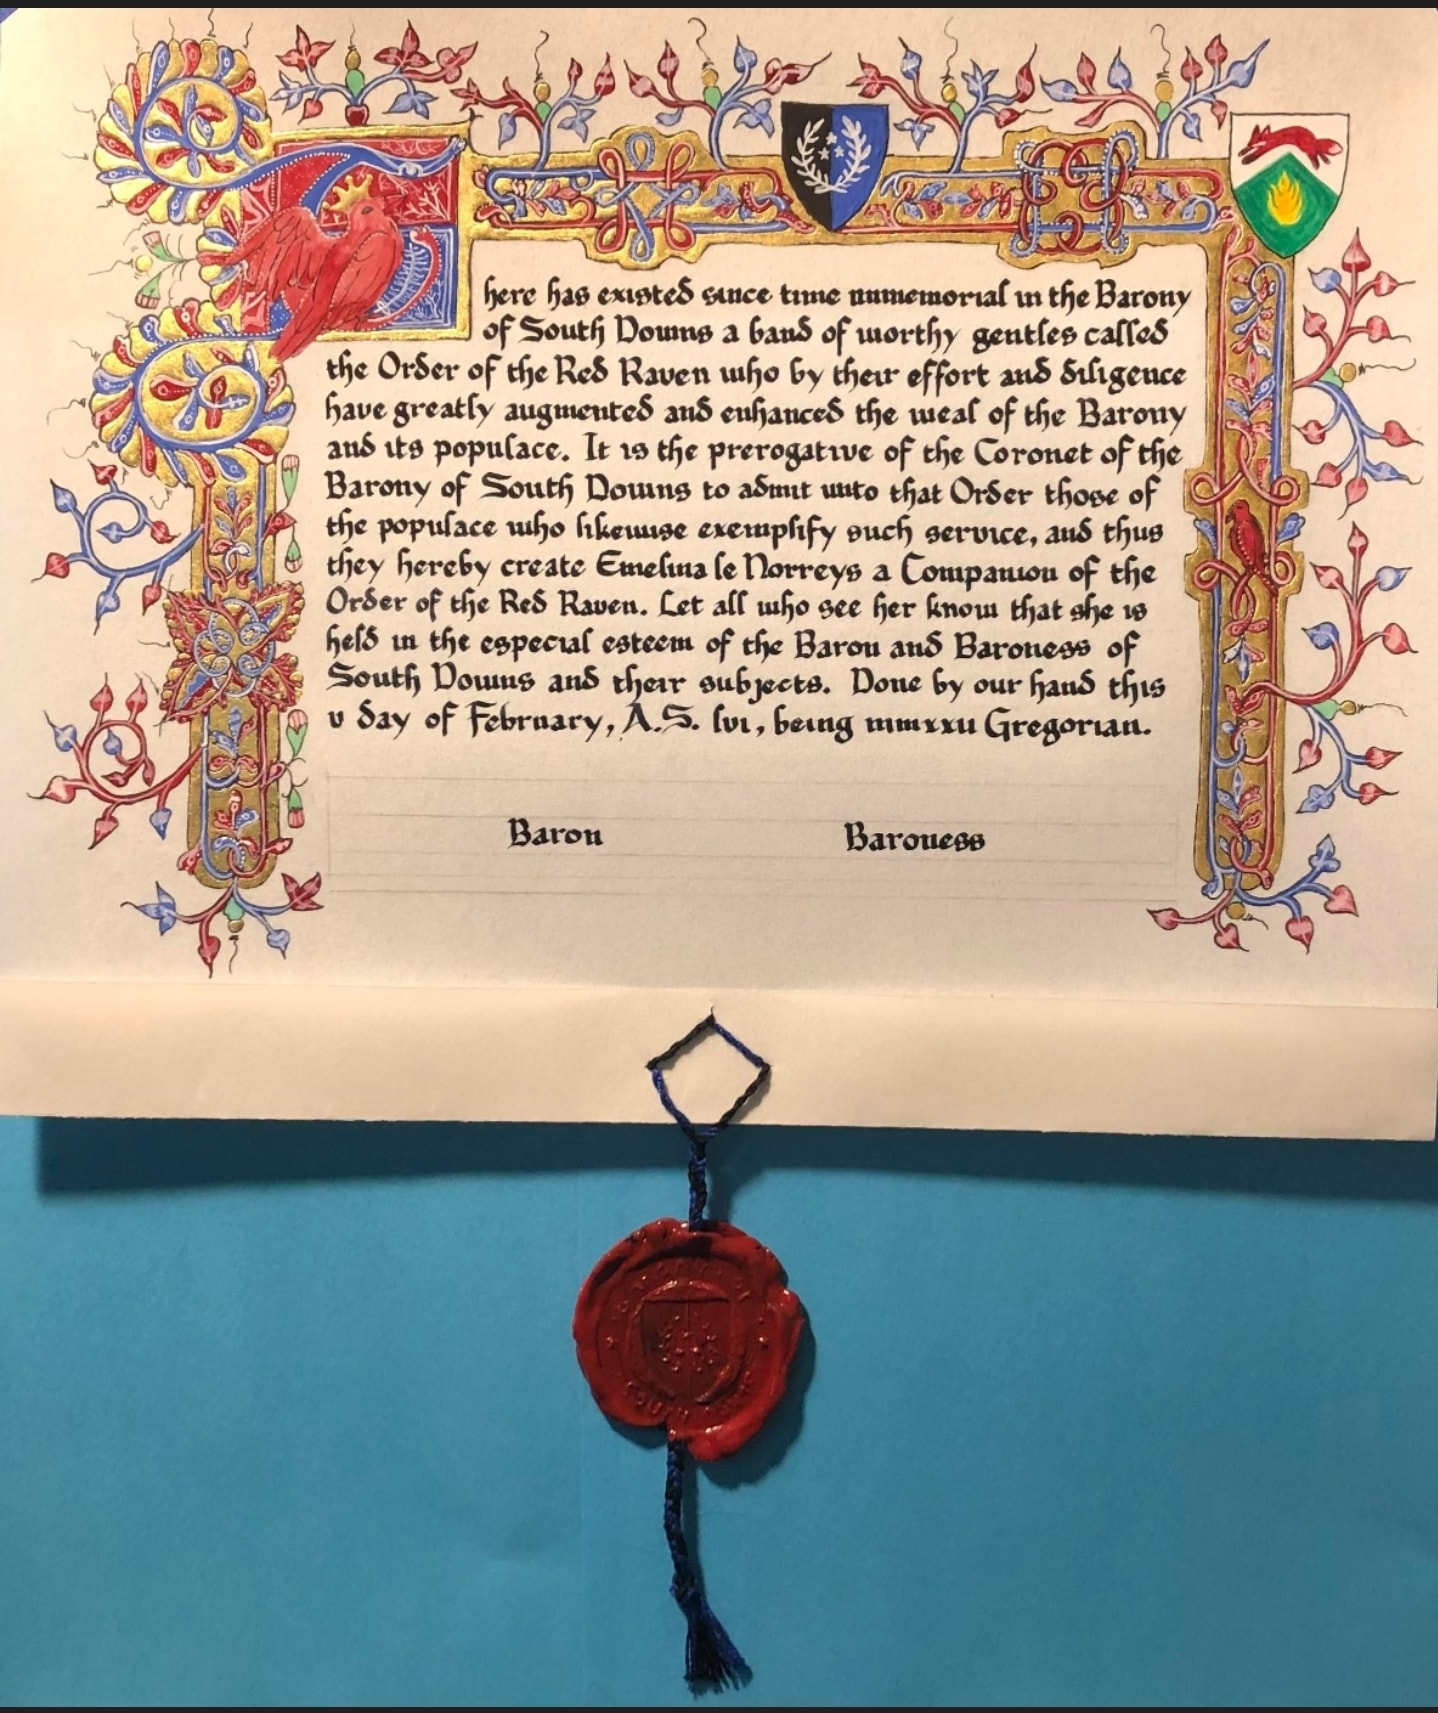 There has existed since time immemorial in the Barony
of South Downs a band of worthy gentles called
the Order of the Red Raven who by their effort and diligence
have greatly augmented and enhanced the weal of the Barony
and its populace. It is the prerogative of the Coronet of the
Barony of South Downs to admit unto that Order those of
the populace who likewise exemplify such service, and thus
they hereby create Emelina le Norreys a Companion of the
Order of the Red Raven. Let all who see her know that she is
held in the especial esteem of the Baron and Baroness of
South Downs and their subjects. Done by our hand this
v day of February, A.S. lvi, being mmxxii Gregorian.
Baron Baroness